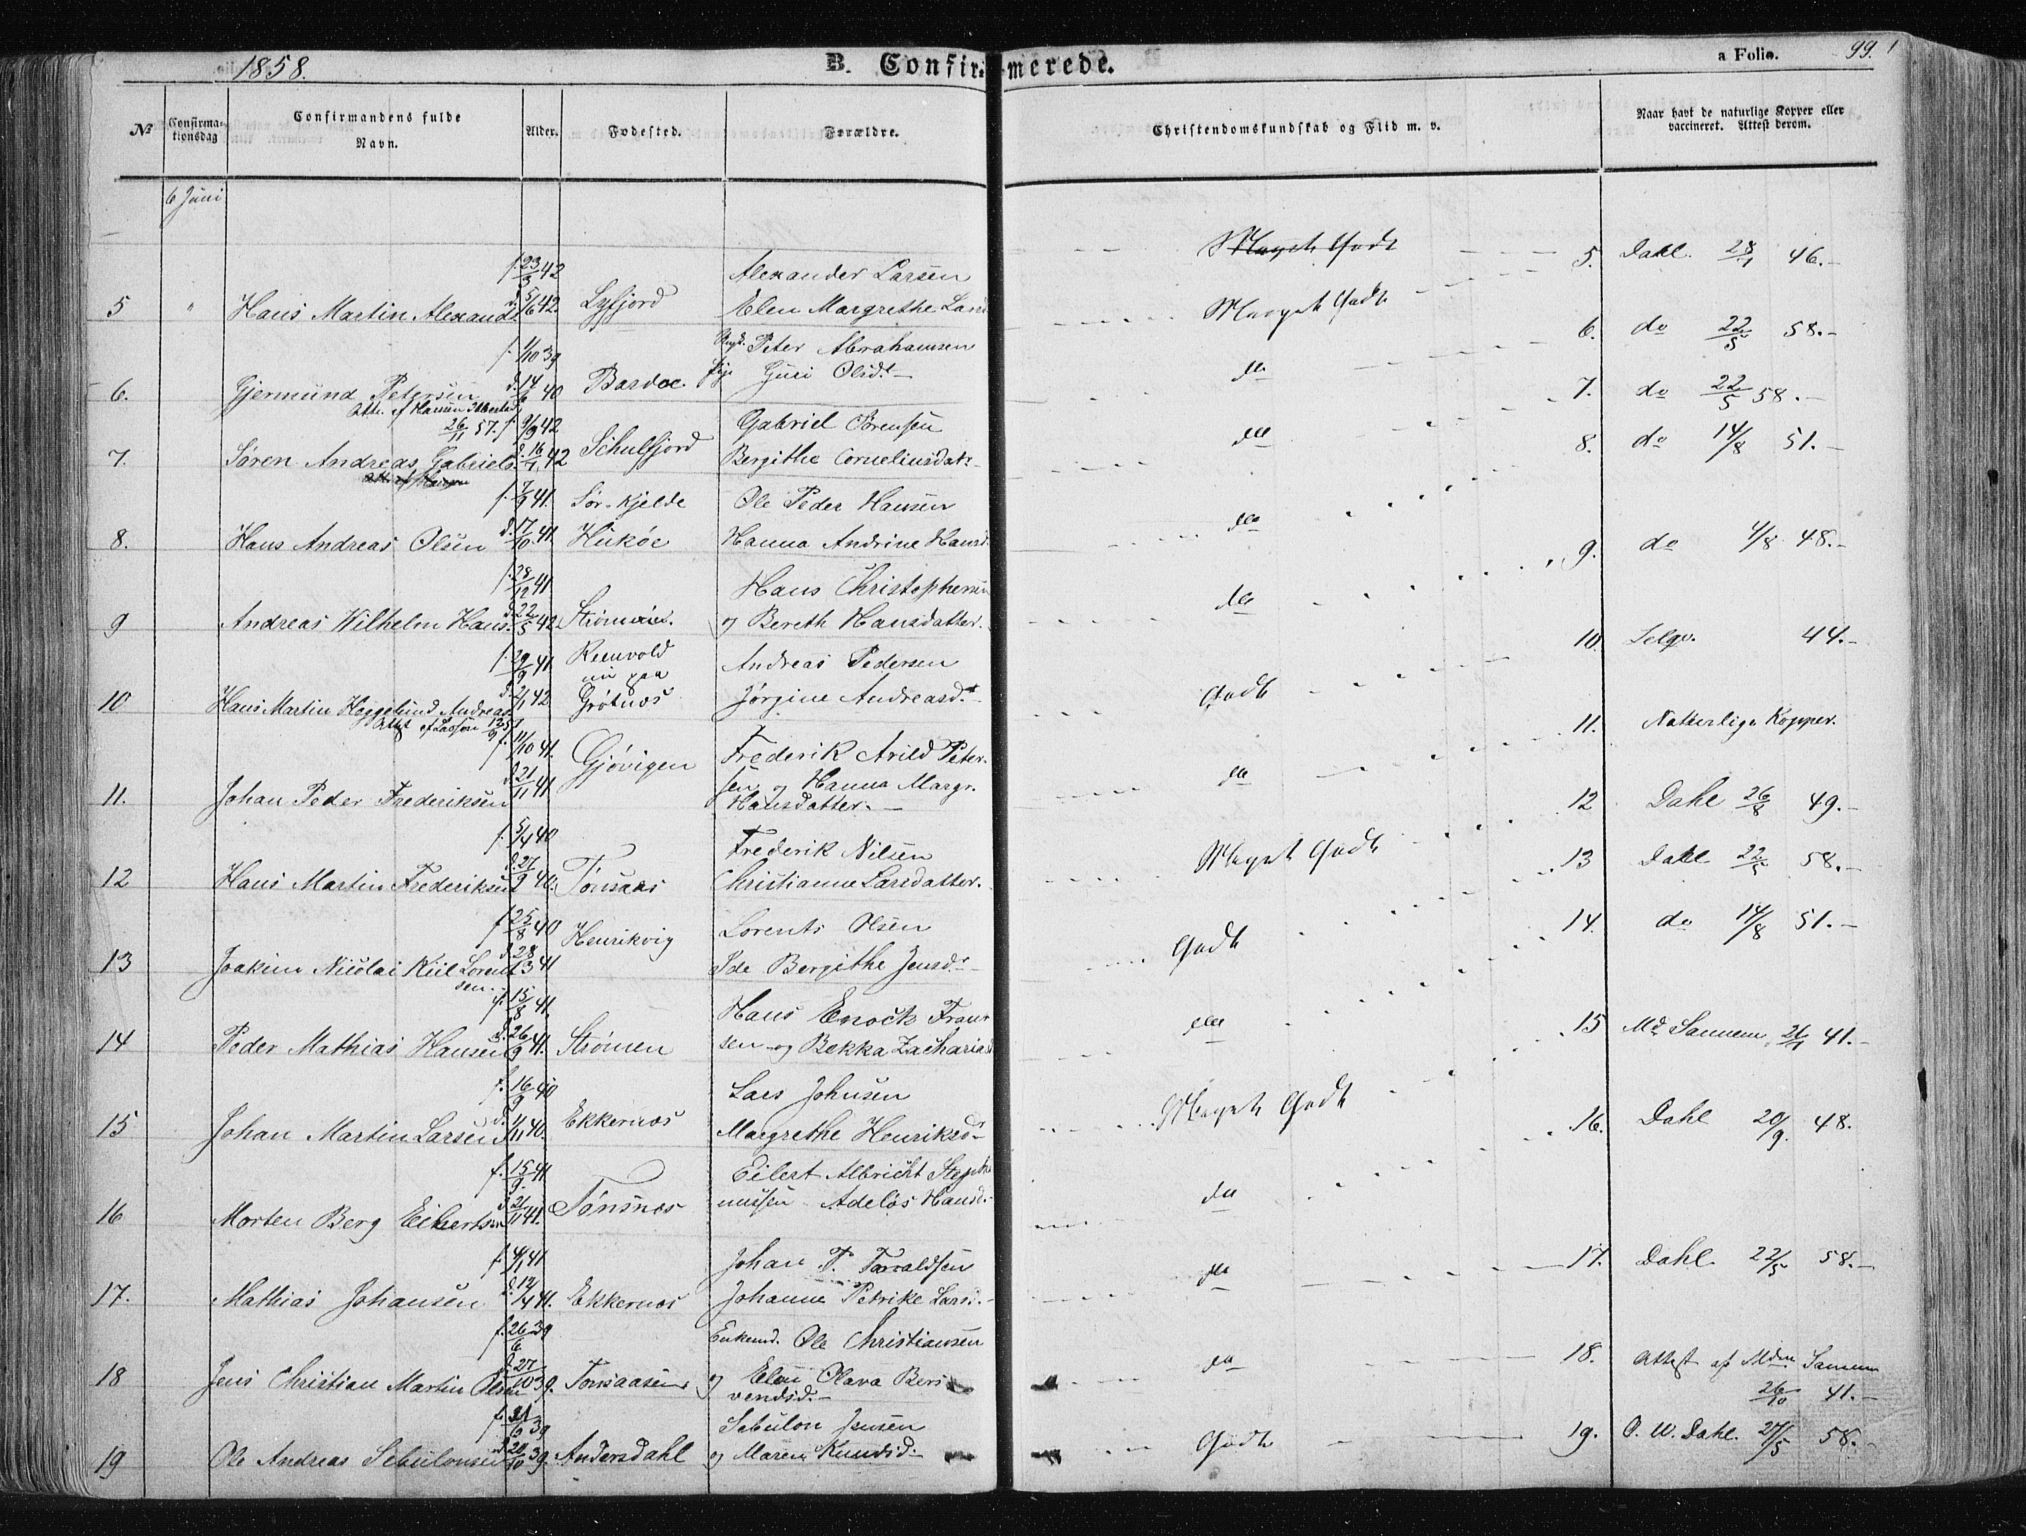 1858.
B. Confirmerede.
a Folio. 99.
No
Confirmationsdag
Confirmandens fulde Navn.
Alder.
Fødested.
Forældre.
Christendomskundskab og Flid m. v.
Naar havt de naturlige Kopper eller vaccineret. Attest derom.
6 Juni
f. 23/3 42 Alexander Larsen Meget Godt 5. Dahl 28/1 46.
5 " Hans Martin Alexands d. 5/6 42. Lyfjord Elen Margrethe Larsd Meget Godt
f. 1/10 39 Peter Abrahamsen 6. do 22/5 58.
6. Gjermund Petersen d. 14/6 40 Bardoe Guri Olsdt do
26/11 57. f. 9/9 42 Gabriel Sørensen 7. do 22/5 58.
7. Søren Andreas Gabriels. 42 Schulfjord Bergithe Corneliusdatr do 8. do 14/8 51.
f. 7/9 41. Sør-Kjelde Ole Peder Hansen
8. Hans Andreas Olsen d. 17/10 41. Ole Hanna Andrine Hansd. do 9. do 4/8 48.
f. 28/12 41 Hans Christophersen
9 Andreas Wilhelm Hans. d. 22/5 42 og Bereth Hansdatter. do 10. 44.
f. 29/9 41. Reenvold nu paa Andreas Pedersen
10 Hans Martin Heggelund Andreas d. 2/1 42 Grøtnæs Jørgine Andreasdt Godt 11. Naturlige Kopper.
f. 11/10 41. Frederik Arild Peter-
11. Johan Peder Frederiksen d. 21/11 41 Gjøvigen sen og Hanna Margr. Hansdatter. do 12 Dahl 26/8 49.
f. 5/4 40 Frederik Nilsen
12 Hans Martin Frederiksen d. 27/9 40. Tønsaas Christianne Larsdatter. Meget Godt 13 Dahl 22/5 58.
f. 25/8 40 Lorents Olsen
13 Joakim Nicolai Kiil Lorentsen. d. 28/3 41 Henrikvig Ide Bergithe Jensdr Godt 14. do 14/8 51.
f. 15/8 41. Hans Enock Fran-
14 Peder Mathias Hansen d. 26/9 41. Strømen sen og Bekka Zacharias do 15 Sannem 41.
f. 16/9 40 Lars Johnsen
15 Johan Martin Larsen d. 1/11 40. Ekkernæs Margrethe Henriksdr Meget Godt 16. Dahl 20/9. 48.
f. 15/9 41 Eilert Albricht
16 Morten Berg Eilertsen d. 21/11 41. Tønsnæs Adeløs Hansd. do
f. 4/1 41 Johan P. Torvaldsen 17. Dahl 22/5 58.
17. Mathias Johansen d. 12/4 41. Ekkernæs Johanne Petrike Larsd. do
f. 26/6 39 Enkemd. Ole Christiansen
18 Jens Christian Martin Olsen d. 27/10 39. Tønsaasen og Elen Olava do 18. Attest af Mdm Sannem 26/10 41.
39 Sebulon Jensen
19 Ole Andreas Sebulonsen d. 20/10 39. Andersdahl og Maren Knudsd. Godt 19. O. W. Dahl. 27/5 58.